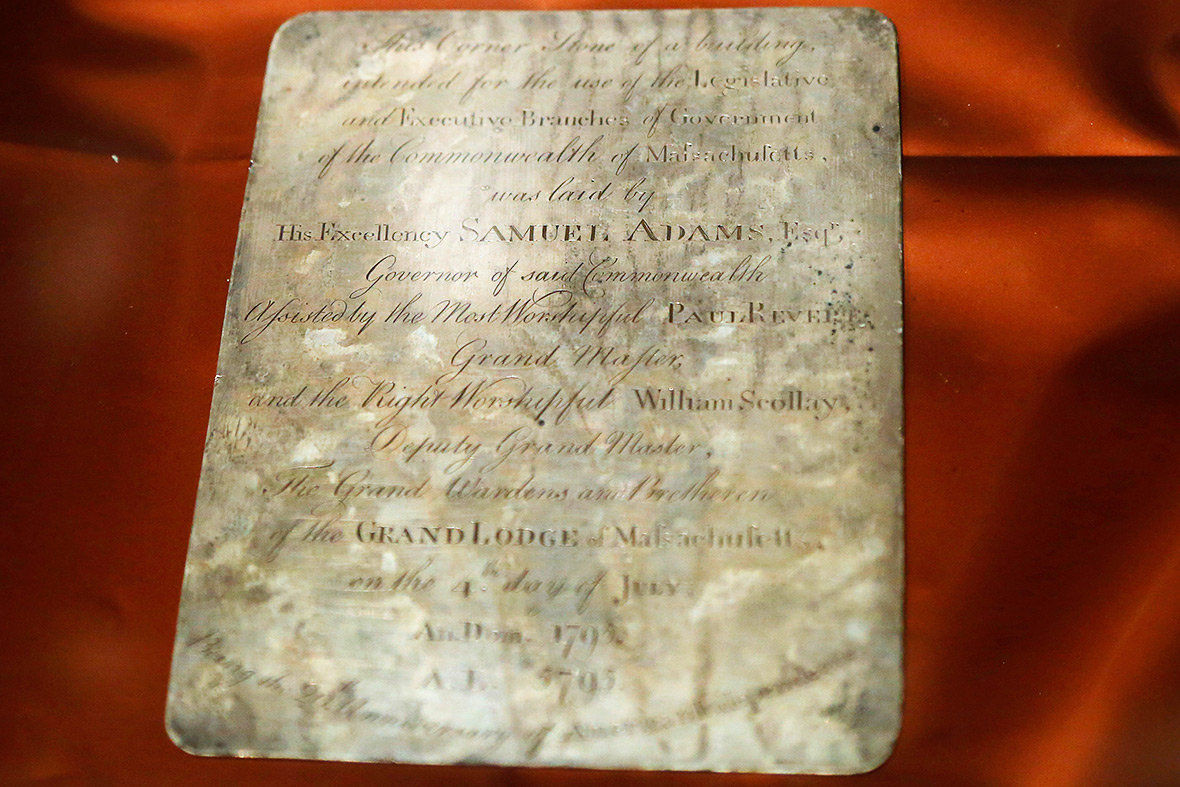 This Corner Stone of a building,
intended for the use of the Legislative
and Executive Branches of Government
of the Commonwealth of Maſsachuſetts,
was laid by
His Excellency SAMUEL ADAMS, Esqr,
Governor of said Commonwealth
Aſsisted by the Most Worshipful PAUL REVERE
Grand Maſter,
and the Right Worshipful William Scollay,
Deputy Grand Master,
The Grand Wardens and Bretheren
of the GRAND LODGE of Maſsachuſetts,
on the 4th day of JULY
An. Dom. 1795.
A. L. 5795.
Being the Anniversary of American Independence